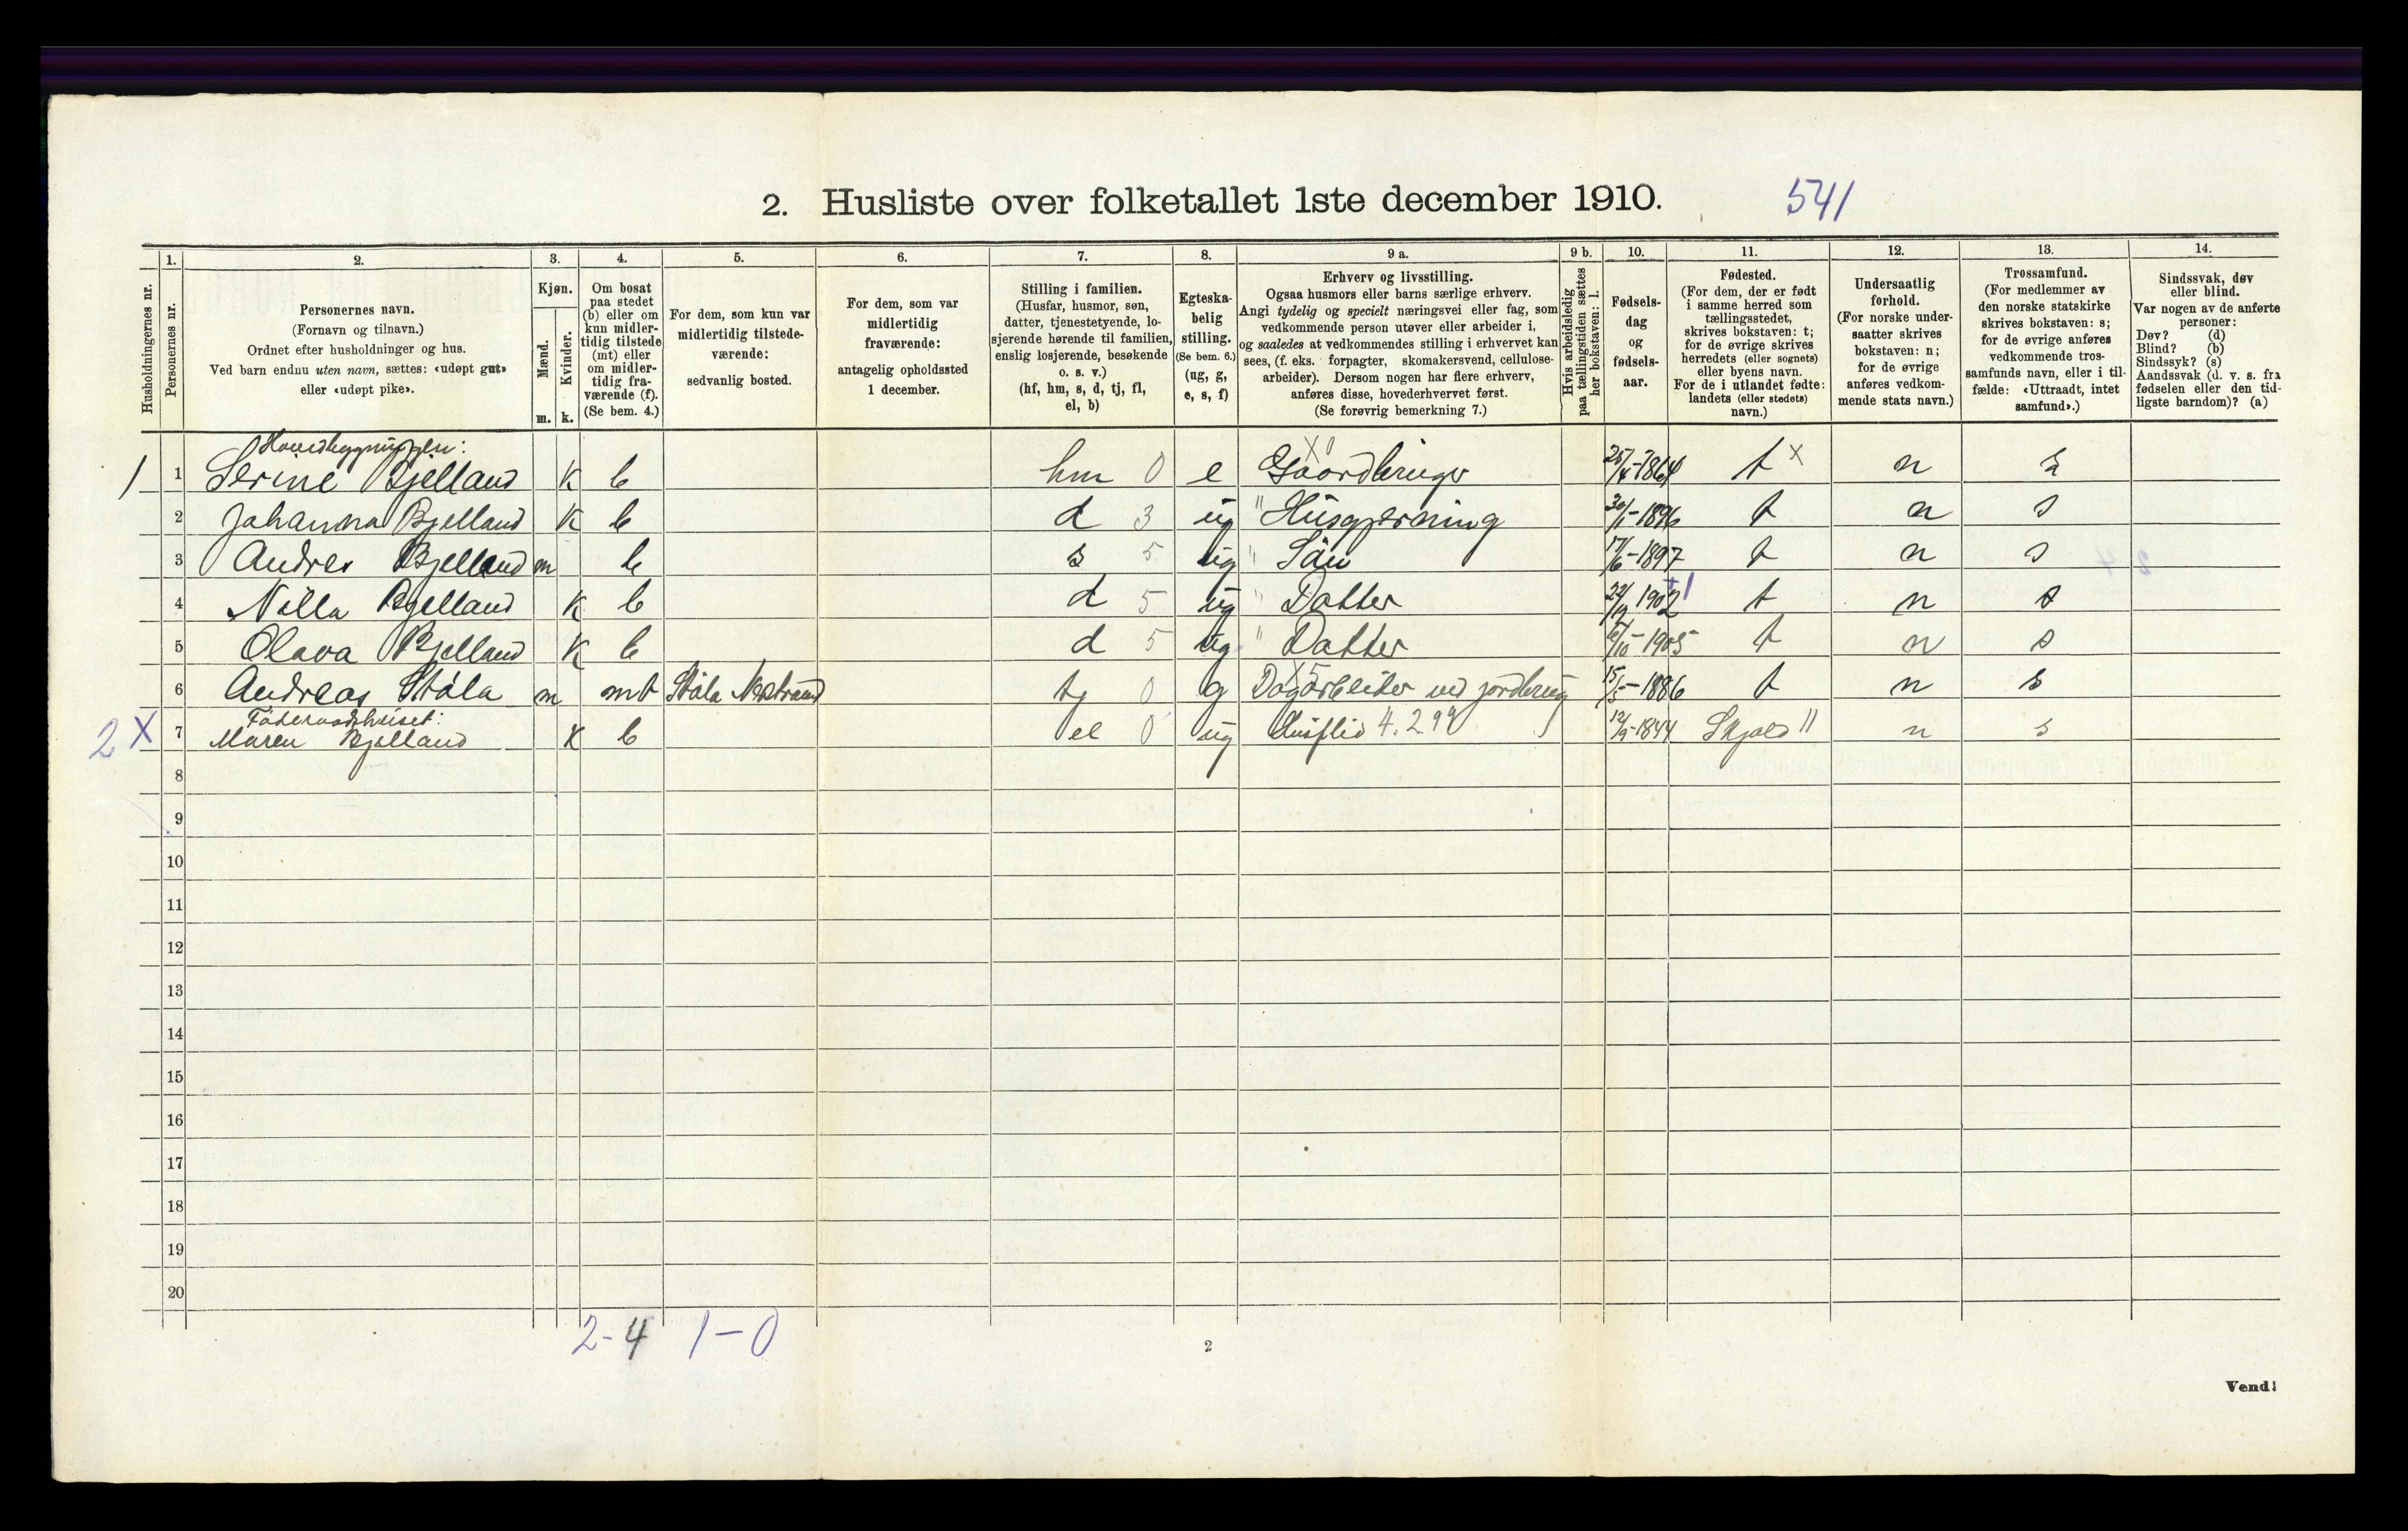 2. Husliste over folketallet 1ste december 1910. 541
Husholdningernes nr.
1. Personernes nr.
2. Personernes navn.
(Fornavn og tilnavn.)
Ordnet efter husholdninger og hus.
Ved barn endnu uten navn, sættes: «udøpt gut»
eller «udøpt pike».
3. Kjøn.
Mænd. m.
Kvinder. k.
4. Om bosat
paa stedet
(b) eller om
kun midler-
tidig tilstede
(mt) eller
om midler-
tidig fra-
værende (f).
(Se bem. 4.)
5. For dem, som kun var
midlertidig tilstede-
værende:
sedvanlig bosted.
6. For dem, som var
midlertidig
fraværende:
antagelig opholdssted
1 december.
7. Stilling i familien.
(Husfar, husmor, søn,
datter, tjenestetyende, lo-
sjerende hørende til familien,
enslig losjerende, besøkende
o. s. v.)
(hf, hm, s, d, tj, fl,
el, b)
8. Egteska-
belig
stilling.
(Se bem. 6.)
(ug, g,
e, s, f)
9 a. Erhverv og livsstilling.
Ogsaa husmors eller barns særlige erhverv.
Angi tydelig og specielt næringsvei eller fag, som
vedkommende person utøver eller arbeider i,
og saaledes at vedkommendes stilling i erhvervet kan
sees, (f. eks. forpagter, skomakersvend, cellulose-
arbeider). Dersom nogen har flere erhverv,
anføres disse, hovederhvervet først.
(Se forøvrig bemerkning 7.)
9 b. Hvis arbeidsledig
paa tællingstiden sættes
her bokstaven: l.
10. Fødsels-
dag
og
fødsels-
aar.
11. Fødested.
(For dem, der er født
i samme herred som
tællingsstedet,
skrives bokstaven: t;
for de øvrige skrives
herredets (eller sognets)
eller byens navn.
For de i utlandet fødte:
landets (eller stedets)
navn.)
12. Undersaatlig
forhold.
(For norske under-
saatter skrives
bokstaven: n;
for de øvrige
anføres vedkom-
mende stats navn.)
13. Trossamfund.
(For medlemmer av
den norske statskirke
skrives bokstaven: s;
for de øvrige anføres
vedkommende tros-
samfunds navn, eller i til-
fælde: «Uttraadt, intet
samfund».)
14. Sindssvak, døv
eller blind.
Var nogen av de anførte
personer:
Døv? (d)
Blind? (b)
Sindssyk? (s)
Aandssvak (d. v. s. fra
fødselen eller den tid-
ligste barndom)? (a)
Hovedbygningen:
1 1 Serine Bjelland k b hm 0 e Gaardbruger 1864 t x n s
2 Johanna Bjelland k b d 3 ug " Husgjerning 30/1-1896 t n s
3 Andres Bjelland m b s 5 ug " Sön 17/6-1897 t n s
4 Nilla Bjelland k b d 5 ug " Datter 1902 t n s
5 Olava Bjelland k b d 5 ug " Datter 6/10-1905 t n s
6 Andreas Ståla m mt Ståla Nerstrand tj 0 g Dagarbeider ved jordbrug 15/5-1886 t n s
Föderaadshuset:
2 X 7 Maren Bjelland k b el 0 ug Husflid 4.2.99 12/9-1844 Skjold 11 n s
8
9
10
11
12
13
14
15
16
17
18
19
20
2-4 1-0
2
Vend!